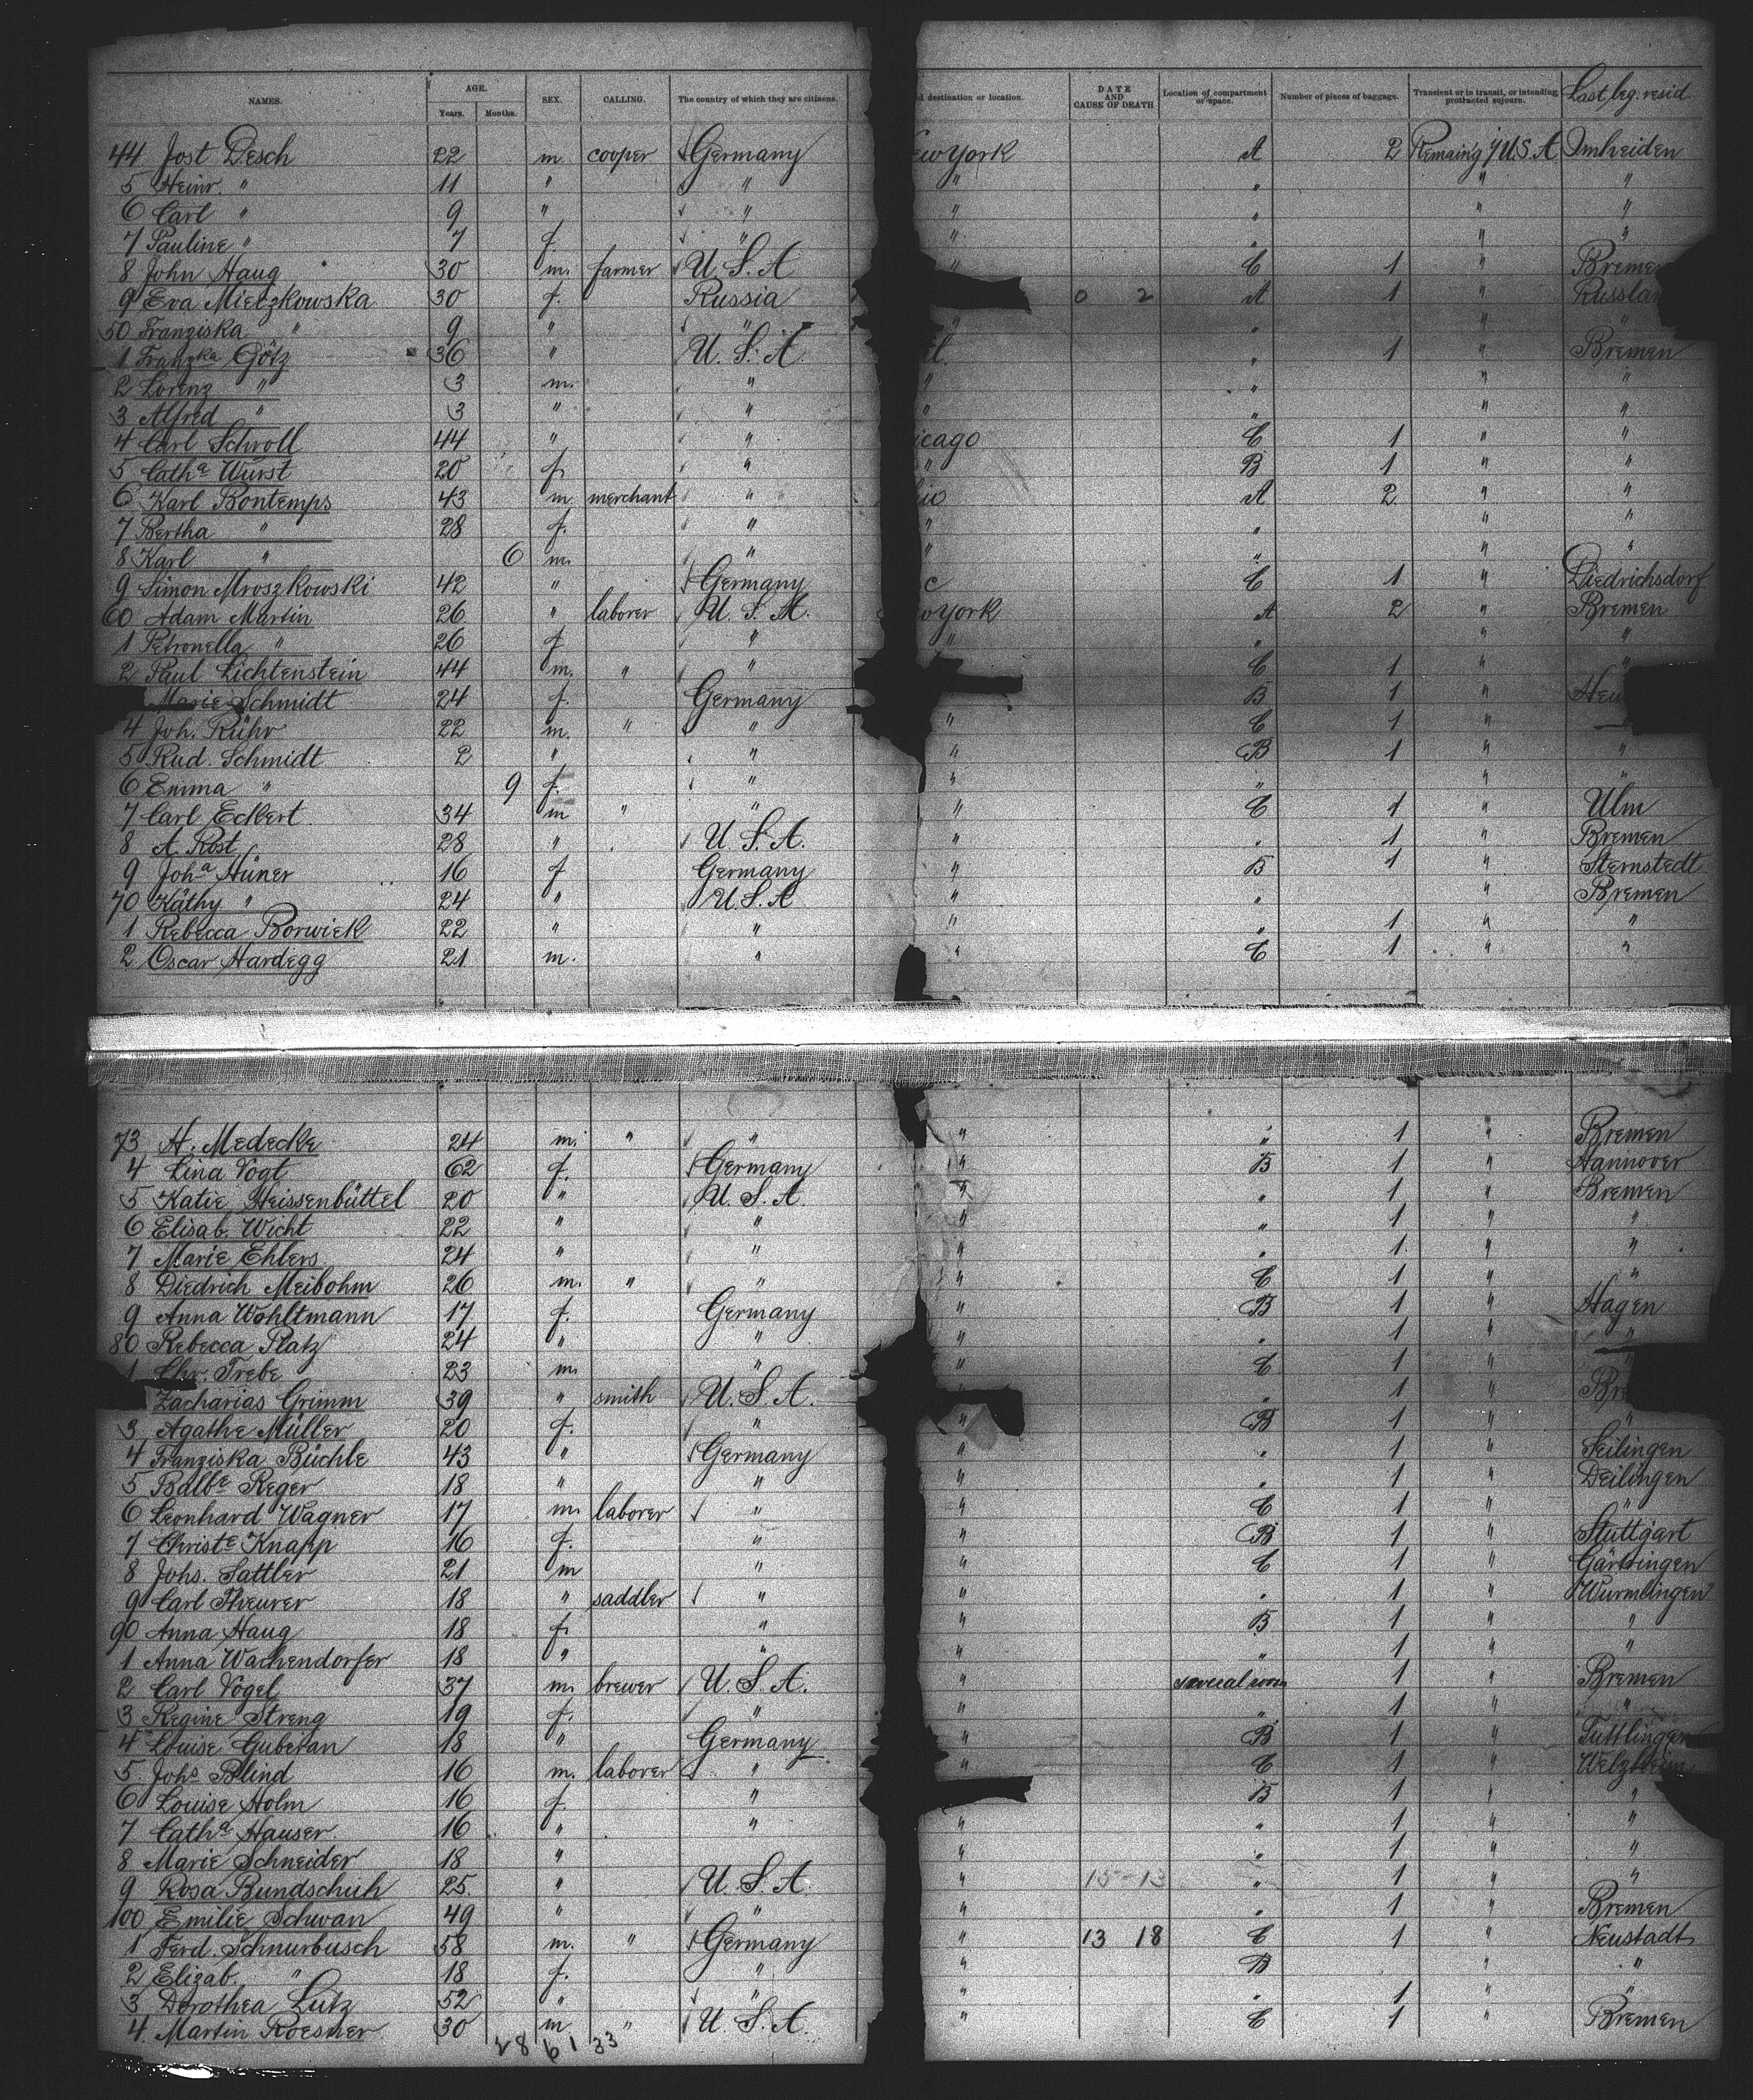 NAMES. AGE. Years. Months. SEX. CALLING. The country of which they are citizens. d destination or location. DATE AND CAUSE OF DEATH Location of compartment or space. Number of pieces of baggage. Transient or in transit, or intending protracted sojourn. Last leg. resid.
44 Jost Desch 22 m. cooper Germany ew York A 2 Remaing i/ U.S.A Imheiden
5 Heinr. " 11 " " " " " "
6 Carl " 9 " " " " " "
7 Pauline " 7 f. " " " " "
8 John Haug 30 m. farmer U.S.A " C 1 " Breme
9 Eva Mietzkowska 30 f. Russia 0 2 A 1 " Russla
50 Franziska " 9 " " " " " "
1 Franzka Götz 36 " U.S.A. l. " 1 " Bremen
2 Lorenz " 3 m. " " " " "
3 Alfred " 3 " " " " " "
4 Carl Schroll 44 " " icago C 1 " "
5 Catha Wurst 20 f. " " B 1 " "
6 Karl Bontemps 43 m. merchant " io A 2 " "
7 Bertha " 28 f. " " " " "
8 Karl " 6 m. " " " " "
9 Simon Mroszkowski 42 " Germany c C 1 " Diedrichsdorf
60 Adam Martin 26 " laborer U.S.A. w York A 2 " Bremen
1 Petronella " 26 f. " " " " "
2 Paul Lichtenstein 44 m. " " C 1 " "
Marie Schmidt 24 f. Germany B 1 " Neu
4 Joh. Rühr 22 m. " " " C 1 "
5 Rud. Schmidt 2 " " " B 1 " "
6 Emma " 9 f. " " " " "
7 Carl Eckert 34 m " " " C 1 " Ulm
8 A. Rost 28 " U.S.A. " " 1 " Bremen
9 Joha Hüner 16 f Germany " B 1 " Stemstedt
70 Käthy " 24 " U.S.A " " " Bremen
1 Rebecca Borwiek 22 " " " " 1 " "
2 Oscar Hardegg 21 m. " " C 1 " "
73 H. Medecke 24 m. " " " " 1 " Bremen
4 Lina Vogt 62 f. Germany " B 1 " Hannover
5 Katie Heissenbüttel 20 " U.S.A. " " 1 " Bremen
6 Elisab. Wicht 22 " " " " 1 " "
7 Marie Ehlers 24 " " " " 1 " "
8 Diedrich Meibohm 26 m. " " " C 1 " "
9 Anna Wohltmann 17 f. Germany " B 1 " Hagen
80 Rebecca Platz 24 " " " " 1 " "
1 Chr. Trebe 23 m. " " C 1 " "
Zacharias Grimm 39 " smith U.S.A. " 1 " Br
3 Agathe Müller 20 f. " " B 1 " "
4 Franziska Büchle 43 " Germany " " 1 " Seilingen
5 Balbe Reger 18 " " " " 1 " Deilingen
6 Leonhard Wagner 17 m. laborer " " C 1 " "
7 Christe Knapp 16 f. " " B 1 " Stuttgart
8 Johs. Sattler 21 m " " C 1 " Gärtringen
9 Carl Theurer 18 " saddler " " " 1 " Wurmlingen
90 Anna Haug 18 f. " " B 1 " "
1 Anna Wachendorfer 18 " " " " 1 " "
2 Carl Vogel 37 m. brewer U.S.A. " several room 1 " Bremen
3 Regine Streng 19 f. " " " 1 " "
4 Louise Guberan 18 " Germany " B 1 " Tuttlingen
5 Johs Blind 16 m. laborer " " C 1 " Welzheim
6 Louise Holm 16 f. " B 1 " "
7 Catha Hauser 16 " " " " 1 " "
8 Marie Schneider 18 " " " 1 " "
9 Rosa Bundschuh 25 " U.S.A. " 15-13 " 1 " "
100 Emilie Schwan 49 " " " " 1 " Bremen
1 Ferd. Schnurbusch 58 m. " Germany " 13 18 C 1 " Neustadt
2 Elizab. " 18 f. " " B " "
3 Dorothea Lutz 52 " " " " 1 " "
4 Martin Roesner 30 m " U.S.A. " C 1 " Bremen
28 61 33